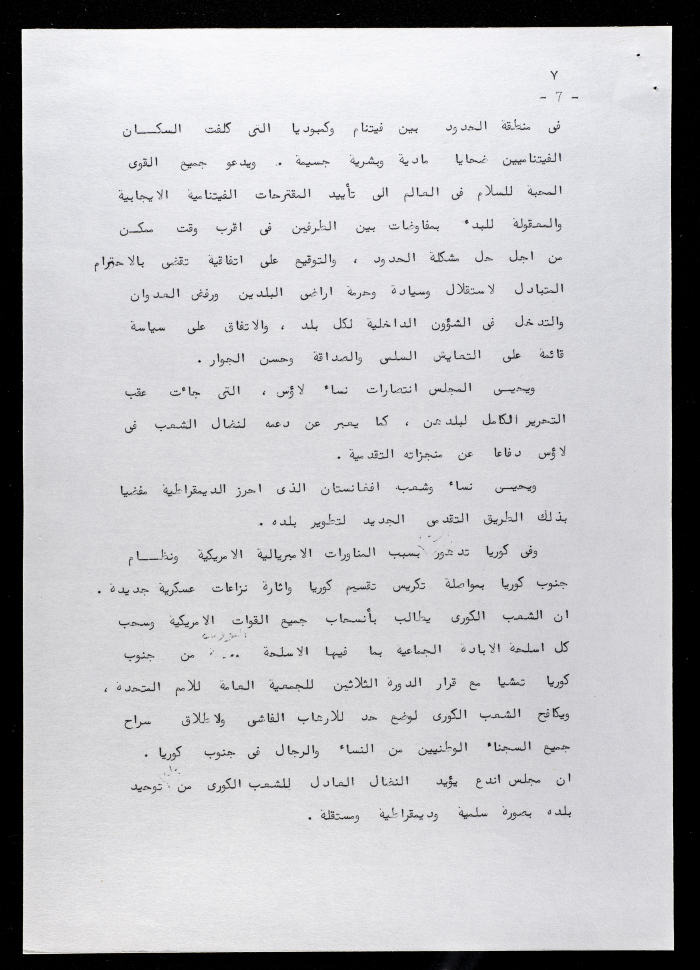 ٧
- 7 -
فى منطقة الحدود بين فيتنام وكمبوديا التى كلفت السكــان
الفيتناميين ضحايا مادية وبشرية جسيمة . ويدعو جميع القوى
المحبة للسلام فى العالم الى تأييد المقترحات الفيتنامية الايجابية
والمعقولة للبدء بمفاوضات بين الطرفين فى اقرب وقت ممكـن
من اجل حل مشكلة الحدود ، والتوقيع على اتفاقية تقضى بالاحترام
المتبادل لاستقلال وسيادة وحرمة اراضى البلدين ورفض العدوان
والتدخل فى الشؤون الداخلية لكل بلد ، والاتفاق على سياسة
قائمة على التعايش السلمى والصداقة وحسن الجوار .
ويحيـى المجلس انتصارات نساء لاؤس ، التى جاءت عقب
التحرير الكامل لبلدهن ، كما يعبر عن دعمه لنضال الشعب فى
لاؤس دفاعا عن منجزاته التقدمية .
ويحيـى نساء وشعب افغانستان الذى احرز الديمقراطية مفضيا
بذلك الطريق التقدمى الجديد لتطوير بلده .
وفى كوريا تدهور بسبب المناورات الامبريالية الامريكية ونظــام
جنوب كوريا بمواصلة تكريس تقسيم كوريا واثارة نزاعات عسكرية جديدة .
ان الشعب الكورى يطالب بأنسحاب جميع القوات الامريكية وسحب
كل اسلحة الابادة الجماعية بما فيها الاسلحة من جنوب
كوريا تمشيا مع قرار الدورة الثلاثين للجمعية العامة للأمم المتحدة ،
ويكافح الشعب الكورى لوضع حد للارهاب الفاشى ولاطلاق سراح
جميع السجناء الوطنيين من النساء والرجال فى جنوب كوريا .
ان مجلس اندع يؤيد النضال العادل للشعب الكورى من توحيد
بلده بصورة سلمية وديمقراطية ومستقلة .